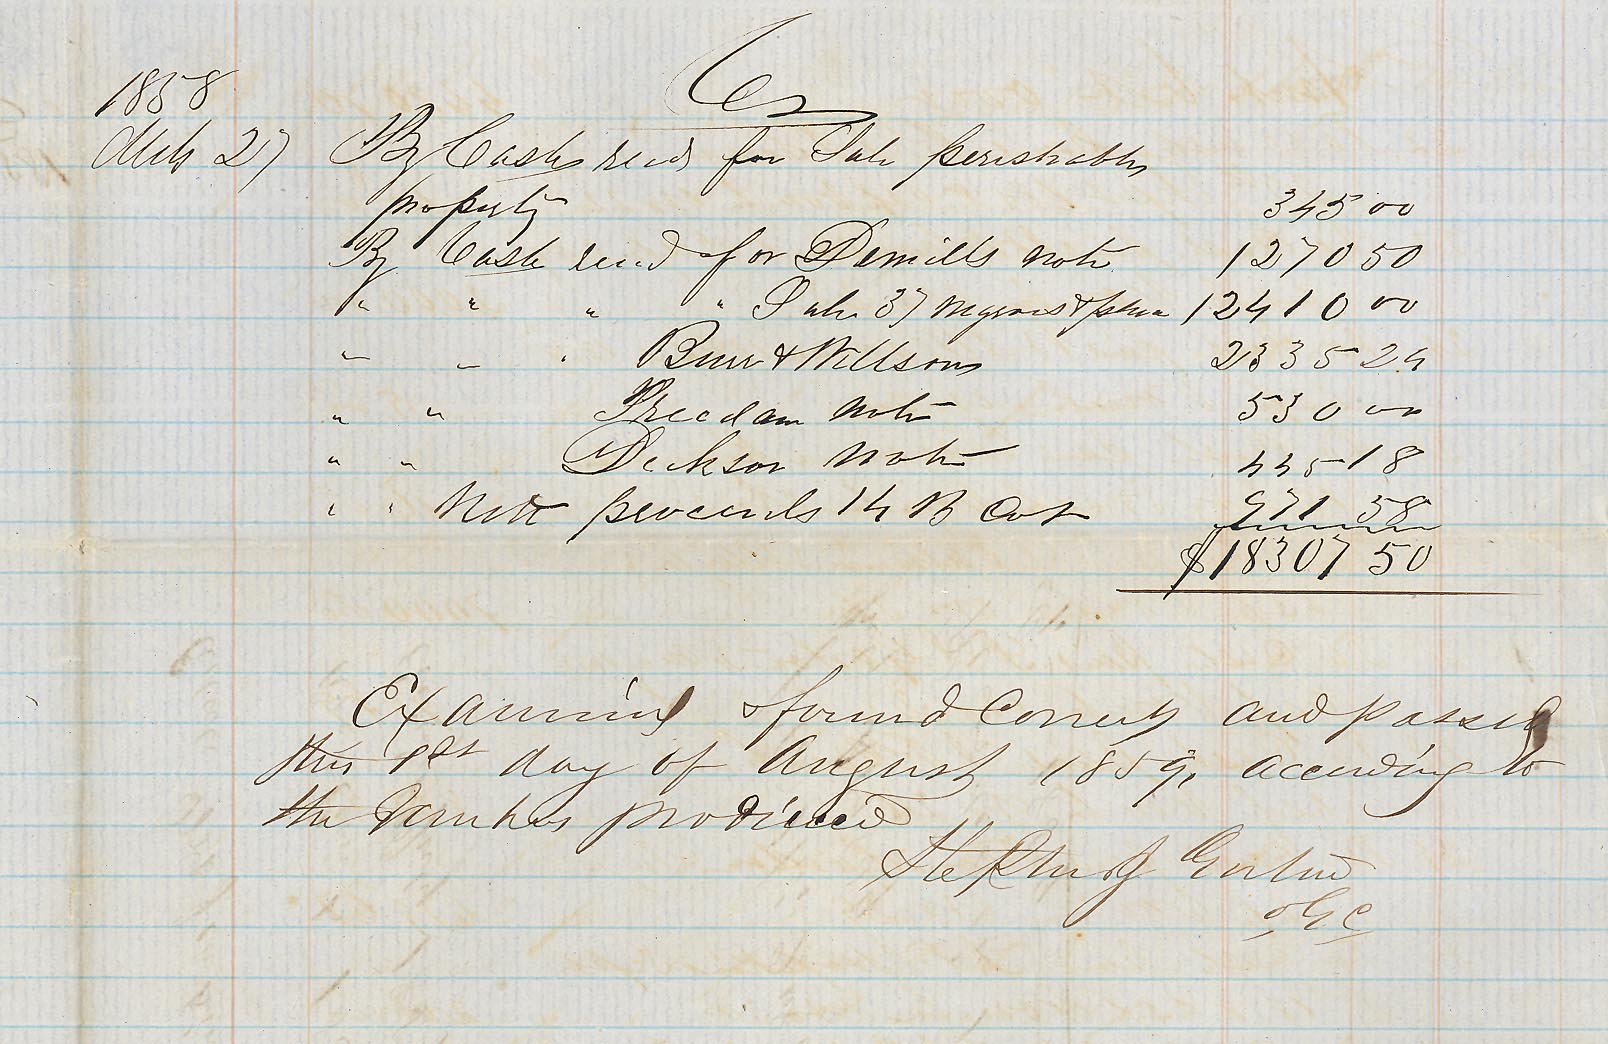 Cr
1858
Mch 27 By Cash recd for Sale perishable
property 345 00
By Cash recd for Demills note 1270 50
" " " " Sale 37 negroes & 12410 00
" " " Burr & Willsons 2335 24
" " Freedam note 530 00
" " Dickson note 445 18
" " Nett proceeds 14 B Cot 971 58
$18307 50
Examined & found Correct and passed
this 1st day of August 1859, according to
the vouches produced
Stephen J